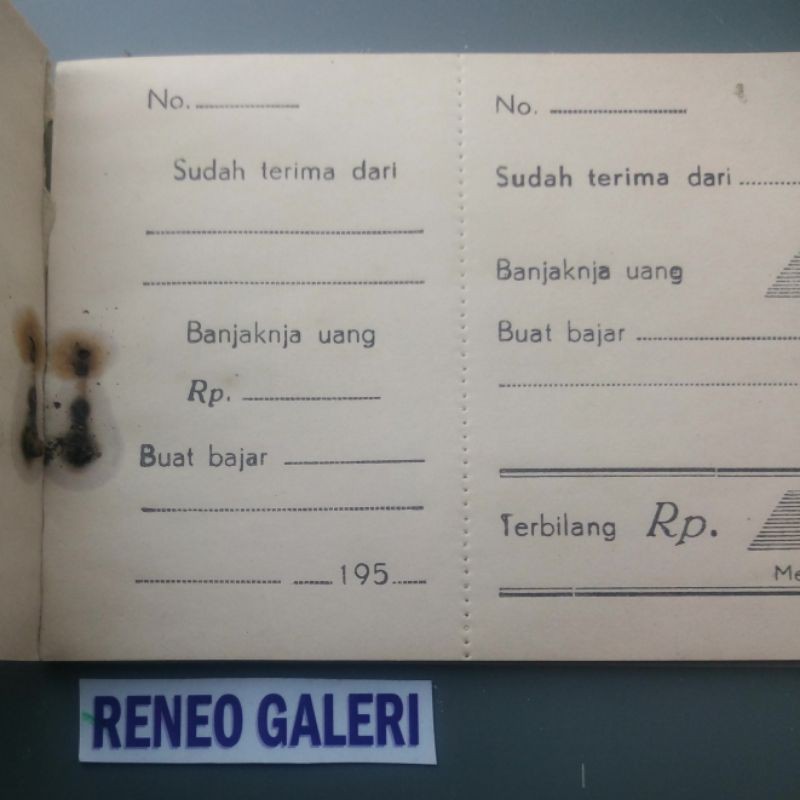 No.
Sudah terima dari
Banjaknja uang
Rp.
Buat bajar
195
No.
Sudah terima dari
Banjaknja uang
Buat bajar
Terbilang Rp.
RENEO GALERI